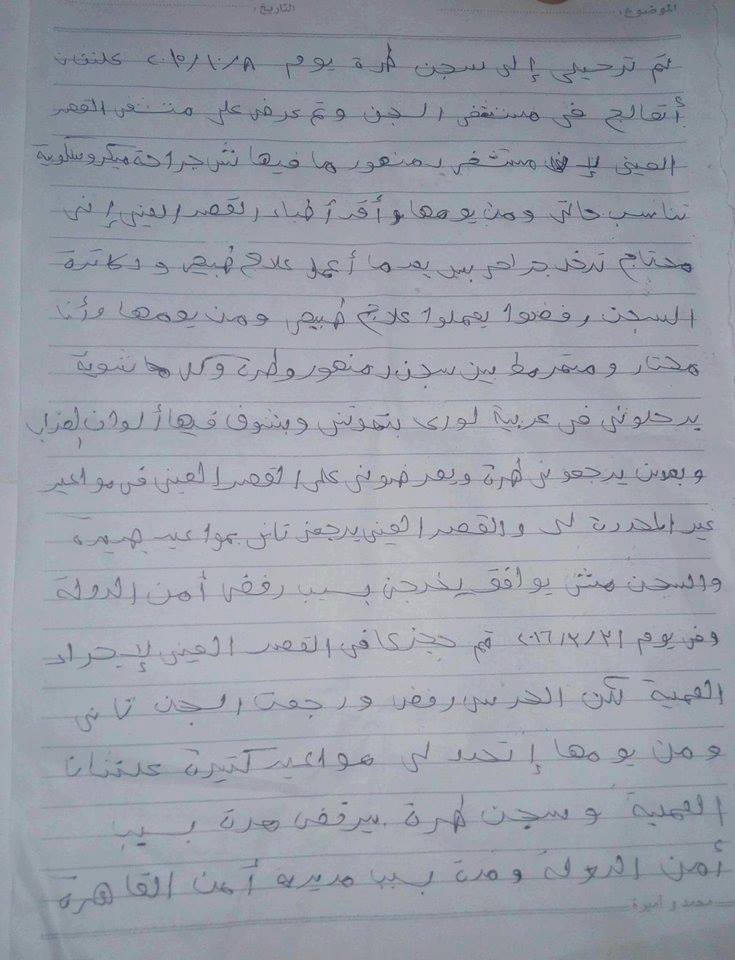 الموضوع: التاريخ:
تم ترحيلي إلى سجن طرة يوم ٢٠١٥/١٠/٨ علشان
أتعالج في مستشفى السجن وتم عرضي على مستشفى القصر
العيني لإن مستشفى دمنهور ما فيهاش جراحة ميكروسكوبية
تناسب حالتي ومن يومها وأقر أطباء القصر العيني إنني
محتاج تدخل جراحي بس بعد ما أعمل علاج طبيعي ودكاترة
السجن رفضوا يعملوا علاج طبيعي ومن يومها وأنا
محتار ومتمرمط بين سجن دمنهور وطرة وكل شوية
يرحلوني في عربية لوري بتموتني وبشوف فيها ألوان العذاب
وبعدين يرجعوني طرة ويعرضوني على القصر العيني في مواعيد
غير المحددة لي والقصر العيني يرجعني تاني بمواعيد جديدة
والسجن مش يوافق يخرجني بسبب رفض أمن الدولة
وفي يوم ٢٠١٦/٢/٢١ تم حجزي في القصر العيني لإجراء
العملية لكن الحرس رفض ورجعت السجن تاني
ومن يومها إتحدد لي مواعيد كتيرة علشان
العملية وسجن طرة بيرفض مرة بسبب
أمن الدولة ومرة بسبب مديرية أمن القاهرة